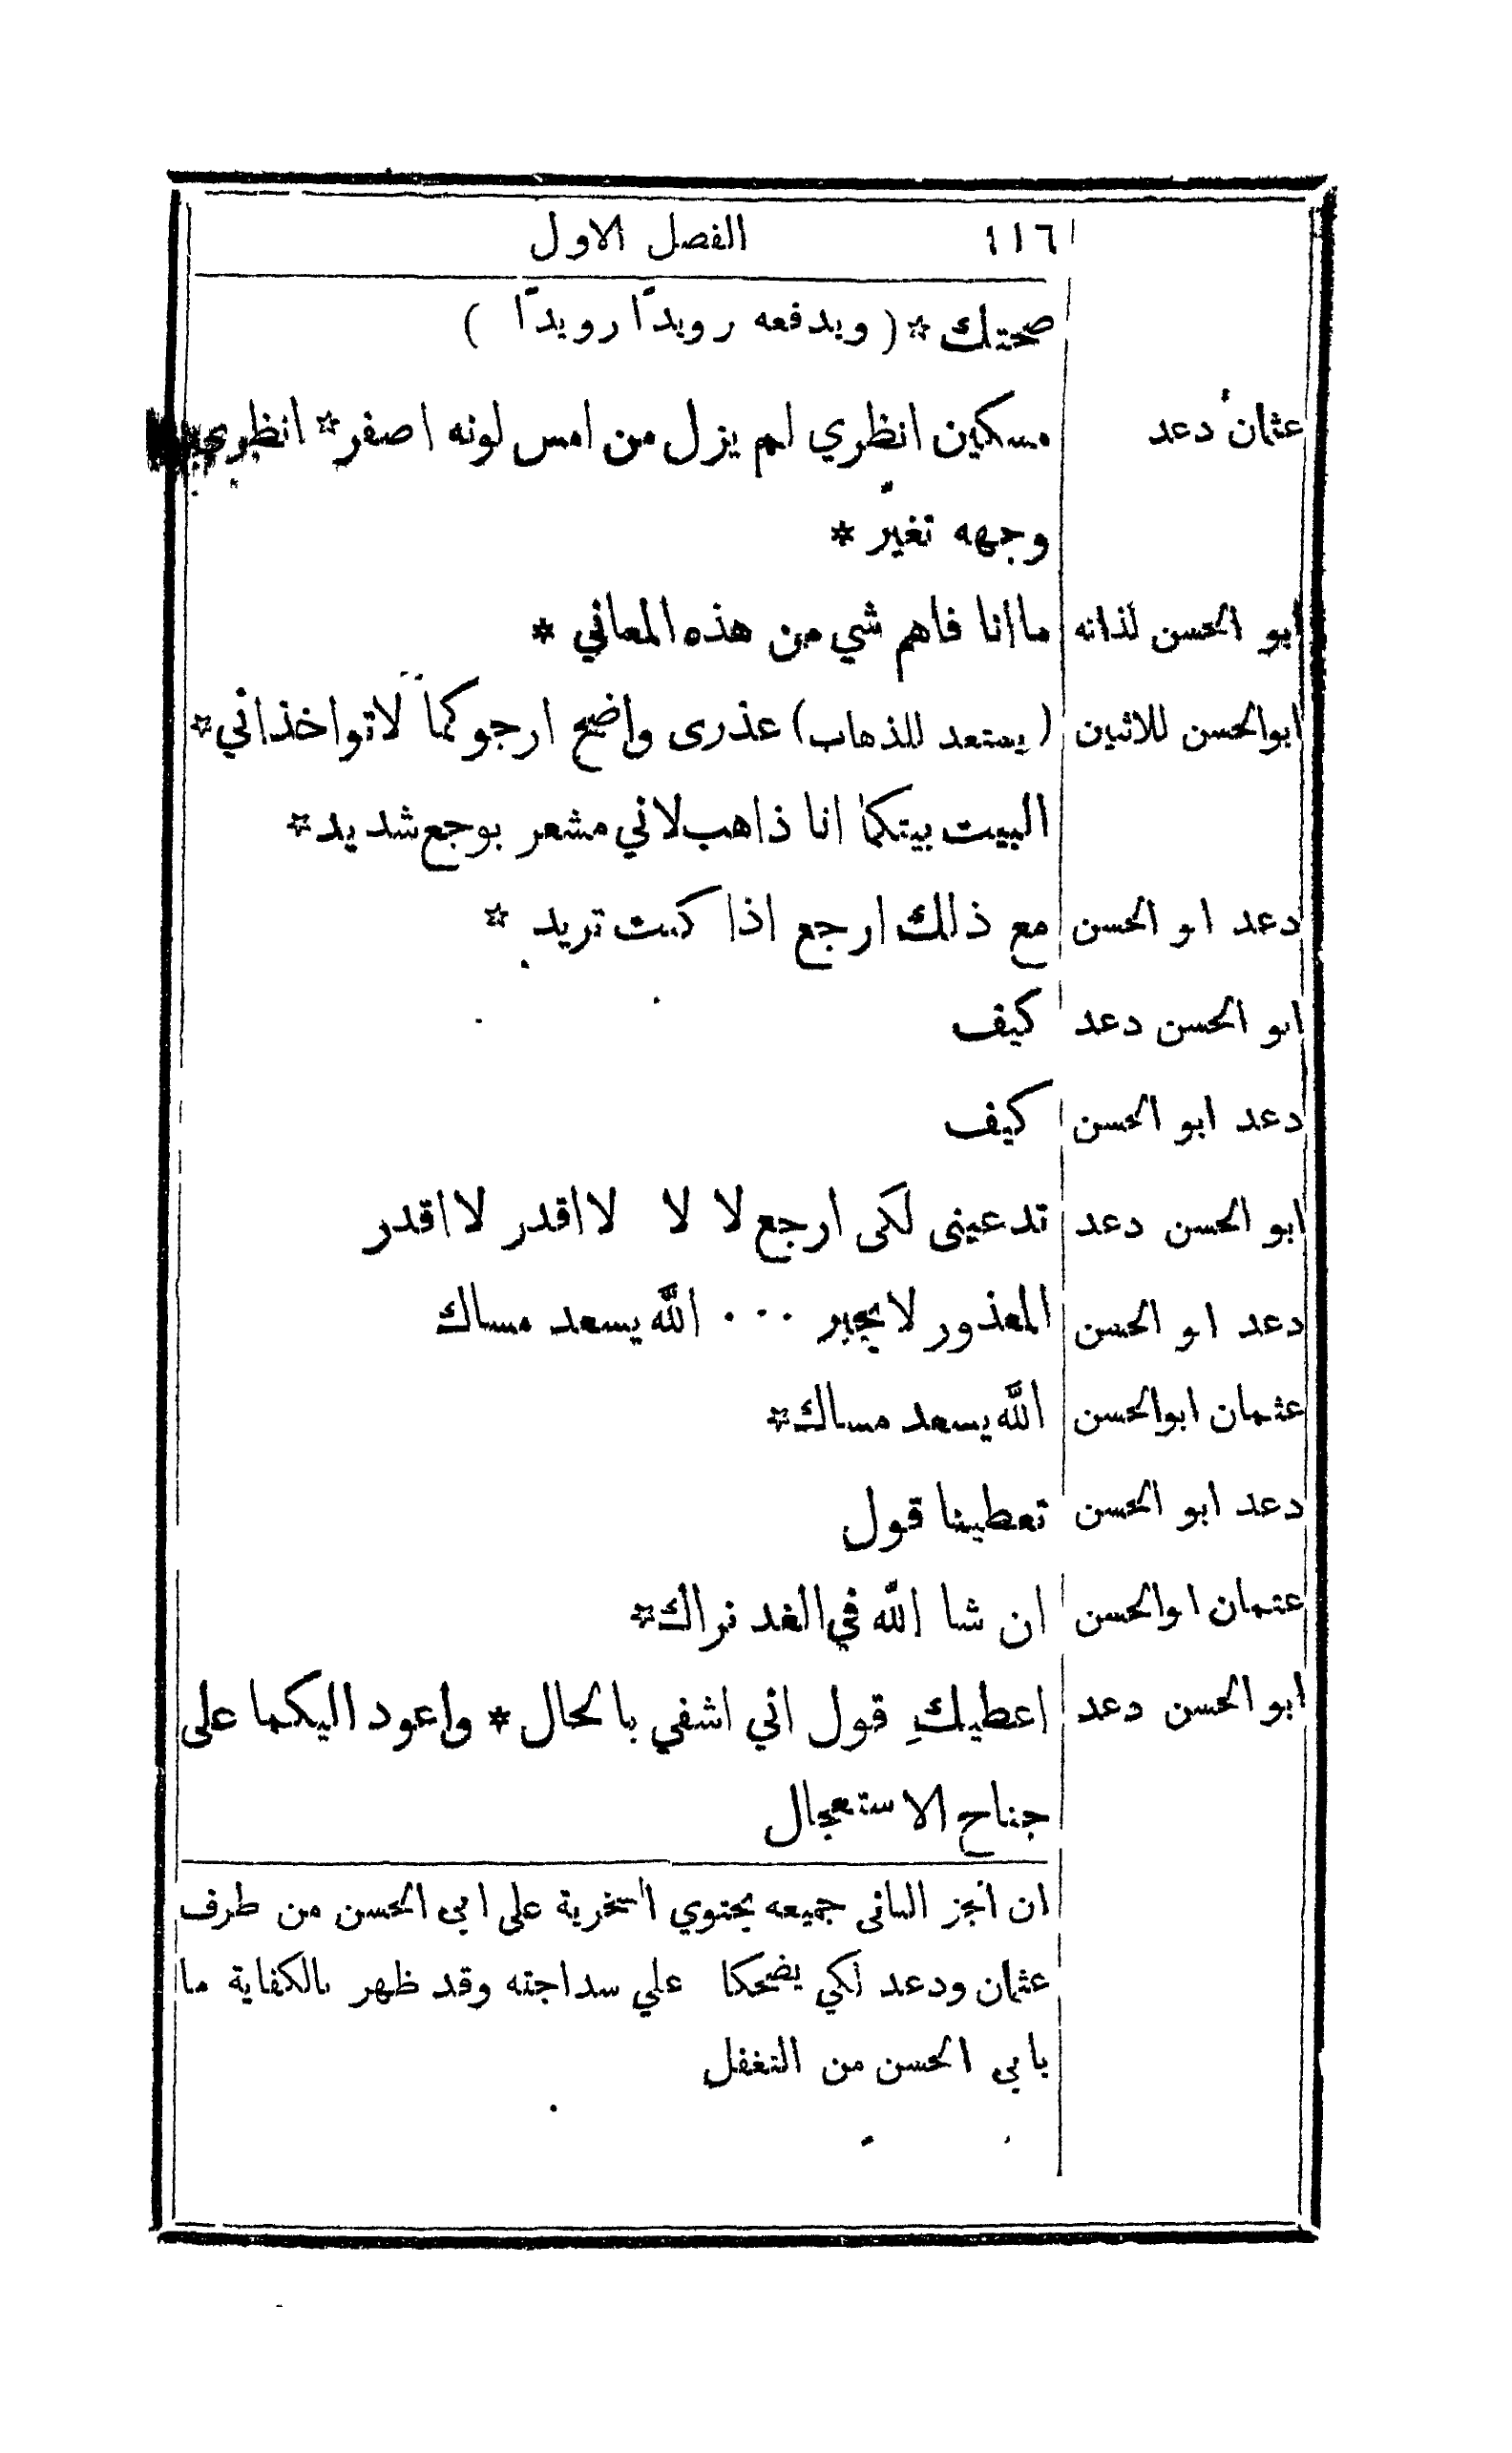 ١١٦ الفصل الاول
صحتك * ( ويدفعه رويدًا رويدًا )
عثمان دعد مسكين انظري لم يزل من امس لونه اصفر * انظري
وجهه تغيّر *
ابو الحسن لذاته ما انا فاهم شي من هذه المعاني *
ابوالحسن للاثنين ( يستعد للذهاب ) عذرى واضح ارجوكما لاتواخذاني *
البيت بيتكما انا ذاهب لاني مشعر بوجع شديد *
دعد ابو الحسن مع ذلك ارجع اذا كنت تريد *
ابو الحسن دعد كيف
دعد ابو الحسن كيف
ابو الحسن دعد تدعينى لكى ارجع لا لا لا لااقدر لااقدر
دعد ابو الحسن المعذور لايجبر ... الله يسعد مساك
عثمان ابوالحسن الله يسعد مساك *
دعد ابو الحسن تعطينا قول
عثمان ابوالحسن ان شا الله في الغد نراك *
ابو الحسن دعد اعطيكِ قول اني اشفي بالحال * واعود اليكما على
جناح الاستعجال
ان الجز الثانى جميعه يحتوي السخرية على ابي الحسن من طرف
عثمان ودعد لكي يضحكا علي سداجته وقد ظهر بالكفاية ما
بابي الحسن من التغفل